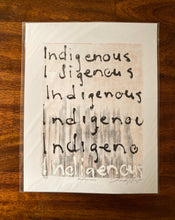 Indigenous
I digenous
Indigenous
Indigenou
Indigeno
Indigenous